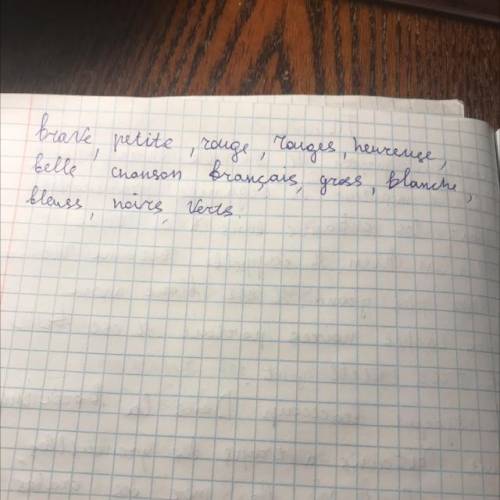 brave, petite, rouge, rouges, heureuse,
belle chanson français, gross, blanche,
bleuss, noirs, verts.